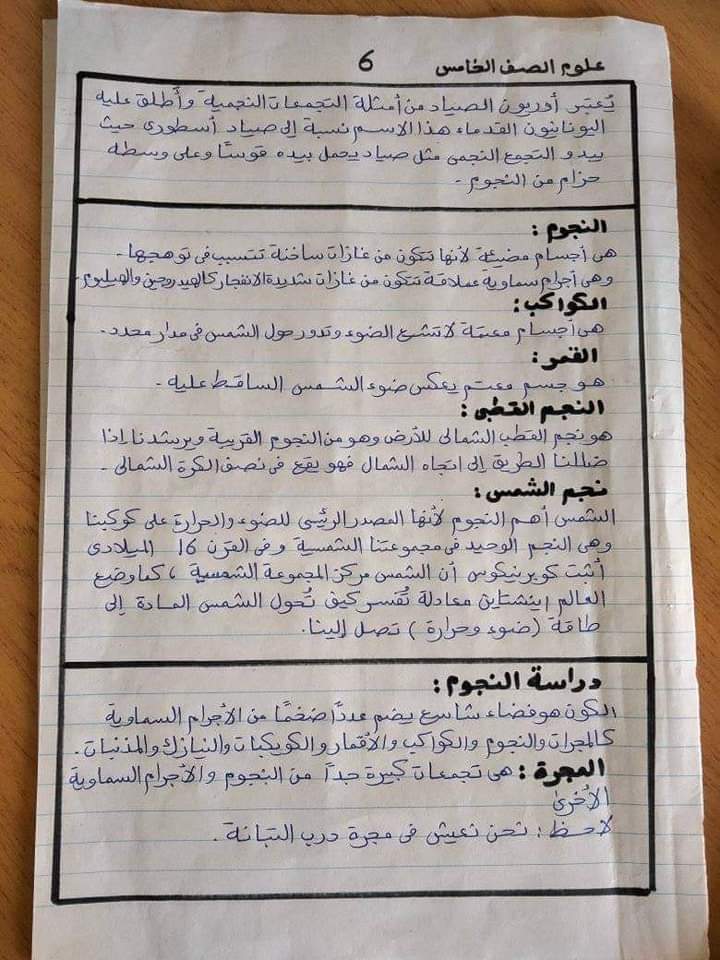 علوم الصف الخامس 6
يُعتبَر أوريون الصياد من أمثلة التجمعات النجمية وأُطلق عليه
اليونانيون القدماء هذا الاسم نسبة إلى صياد أسطورى حيث
يبدو التجمع النجمى مثل صياد يحمل بيده قوسًا وعلى وسطه
حزام من النجوم .
النجوم :
هى أجسام مضيئة لأنها تتكون من غازات ساخنة تتسبب فى توهجها .
وهى أجرام سماوية عملاقة تتكون من غازات شديدة الانفجار كالهيدروجين والهيليوم .
الكواكب :
هى أجسام معتمة لا تشع الضوء وتدور حول الشمس فى مدار محدد .
القمر :
هو جسم معتم يعكس ضوء الشمس الساقط عليه .
النجم القطبى :
هو نجم القطب الشمالى للأرض وهو من النجوم القريبة ويرشدنا إذا
ضللنا الطريق إلى اتجاه الشمال فهو يقع فى نصف الكرة الشمالى .
نجم الشمس :
الشمس أهم النجوم لأنها المصدر الرئيسى للضوء والحرارة على كوكبنا
وهى النجم الوحيد فى مجموعتنا الشمسية وفى القرن 16 الميلادى
أثبت كوبرنيكوس أن الشمس مركز المجموعة الشمسية ، كما وضع
العالم اينشتاين معادلة تُفسر كيف تُحول الشمس المادة إلى
طاقة ( ضوء وحرارة ) تصل إلينا .
دراسة النجوم :
الكون هو فضاء شاسع يضم عددًا ضخمًا من الأجرام السماوية
كالمجرات والنجوم والكواكب والأقمار والكويكبات والنيازك والمذنبات .
المجرة : هى تجمعات كبيرة جدًا من النجوم والأجرام السماوية
الأخرى
لاحظ : نحن نعيش فى مجرة درب التبانة .